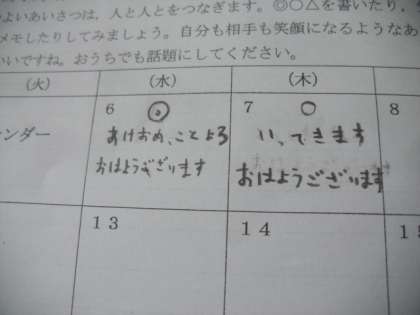 よいあいさつは、人と人とをつなぎます。◎○△を書いたり、
メモしたりしてみましょう。自分も相手も笑顔になるようなあ
いいですね。おうちでも話題にしてください。
(火) (水) (木)
6 ◎ 7 ○ 8
ンダー あけおめ、ことよろ いってきます
おはようござります おはようござります
13 14 15